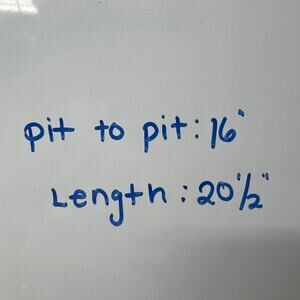 pit to pit: 16"
Length: 20 1/2"